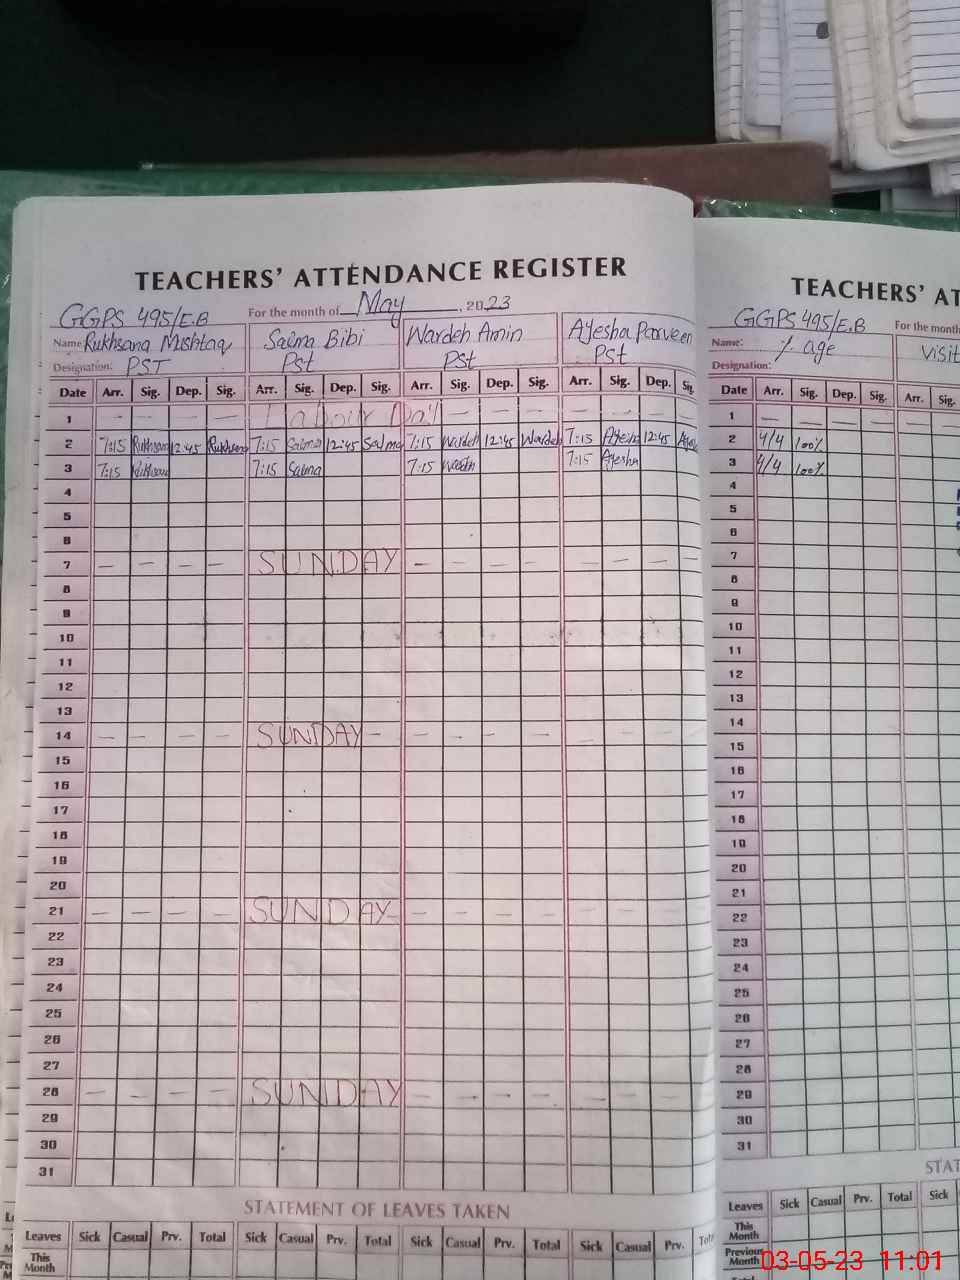 TEACHERS' ATTENDANCE REGISTER
GGPS 495/E.B For the month of May, 2023
Name Rukhsana Mushtaq Salma Bibi Wardeh Amin Ayesha Parveen
Designation: PST Pst Pst Pst
Date Arr. Sig. Dep. Sig. Arr. Sig. Dep. Sig. Arr. Sig. Dep. Sig. Arr. Sig. Dep. Sig.
1 — — — — Labour Day — — — — — — —
2 7:15 Rukhsana 12:45 Rukhsana 7:15 Salma 12:45 Salma 7:15 Wardeh 12:45 Wardeh 7:15 Ayesha 12:45
3 7:15 Rukhsana 7:15 Salma 7:15 Wardeh 7:15 Ayesha
4
5
6
7 — — — — SUNDAY — — — — — — —
8
9
10
11
12
13
14 — — — — SUNDAY — — — — — — — —
15
16
17
18
19
20
21 — — — — SUNDAY — — — — — — — —
22
23
24
25
26
27
28 — — — — SUNDAY — — — — — — — —
29
30
31
STATEMENT OF LEAVES TAKEN
Leaves Sick Casual Prv. Total Sick Casual Prv. Total Sick Casual Prv. Total Sick Casual Prv.
This
Month
TEACHERS' AT
GGPS 495/E.B For the month
Name: % age Visit
Designation:
Date Arr. Sig. Dep. Sig. Arr. Sig.
1 — —
2 4/4 100%
3 4/4 100%
4
5
6
7
8
9
10
11
12
13
14
15
16
17
18
19
20
21
22
23
24
25
26
27
28
29
30
31
STAT
Leaves Sick Casual Prv. Total Sick
This
Month
Previous
Month
03-05-23 11:01